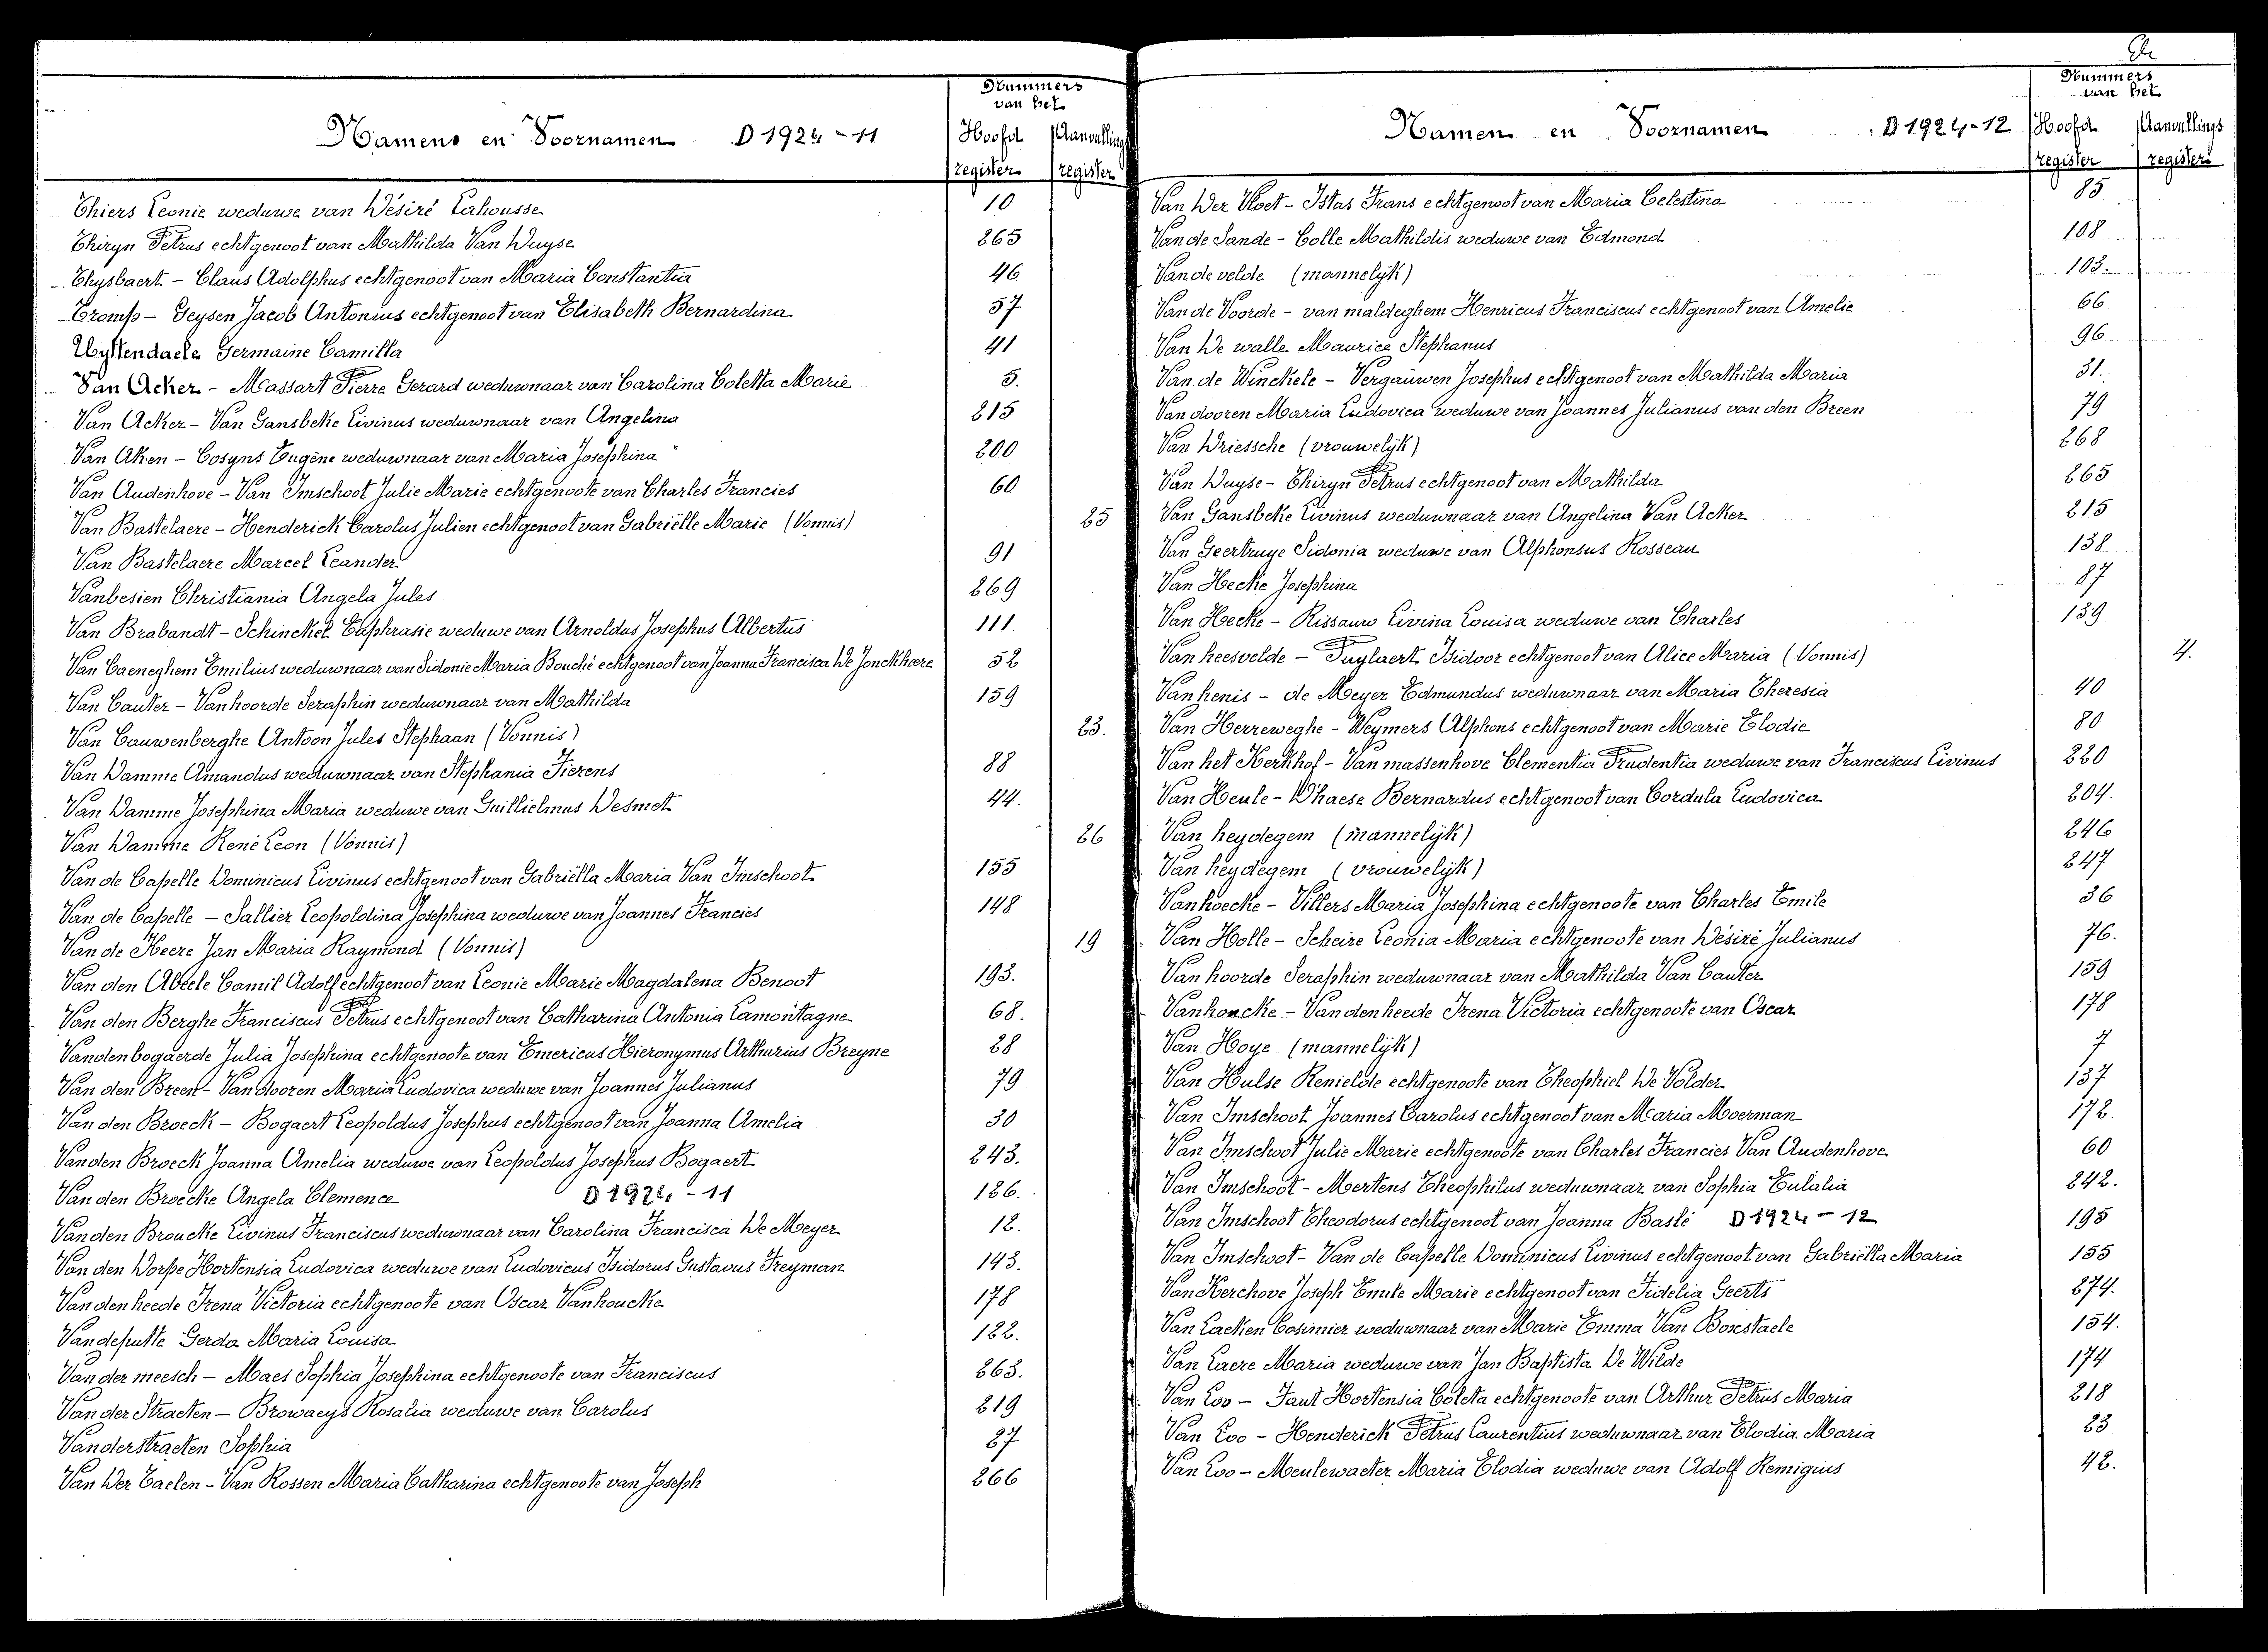 Nummers
van het
Namens en Voornamen D 1924-11 Hoofd Aanvullings
register register
Thiers Leonie weduwe van Désiré Lahousse 10
Thiryn Petrus echtgenoot van Mathilda Van Duyse 265
Thysbaert - Claus Adolphus echtgenoot van Maria Constantia 46
Tromp - Geysen Jacob Antonius echtgenoot van Elisabeth Bernardina 57
Uyttendaele Germaine Camilla 41
Van Acker - Massart Pierre Gerard weduwnaar van Carolina Coletta Marie 5.
Van Acker - Van Gansbeke Livinus weduwnaar van Angelina 215
Van Aken - Cosyns Eugène weduwnaar van Maria Josephina 200
Van Audenhove - Van Imschoot Julie Marie echtgenoote van Charles Francies 60
Van Bastelaere - Henderick Carolus Julien echtgenoot van Gabriëlle Marie (Vonnis) 25
Van Bastelaere Marcel Leander 91
Vanbesien Christiania Angela Jules 269
Van Brabandt - Schinckel Euphrasie weduwe van Arnoldus Josephus Albertus 111.
Van Caeneghem Emilius weduwnaar van Sidonie Maria Bouché echtgenoot van Joanna Francisca De Jonckheere 52
Van Cauter - Vanhoorde Seraphin weduwnaar van Mathilda 159
Van Cauwenberghe Antoon Jules Stephaan (Vonnis) 23.
Van Damme Amandus weduwnaar van Stephania Fierens 88
Van Damme Josephina Maria weduwe van Guillielmus Desmet 44.
Van Damme René Leon (Vonnis) 26
Van de Capelle Dominicus Livinus echtgenoot van Gabriëlla Maria Van Imschoot 155
Van de Capelle - Sallier Leopoldina Josephina weduwe van Joannes Francies 148
Van de Keere Jan Maria Raymond (Vonnis) 19
Van den Abeele Camil Adolf echtgenoot van Leonie Marie Magdalena Benoot 193.
Van den Berghe Franciscus Petrus echtgenoot van Catharina Antonia Lamontagne 68.
Vandenbogaerde Julia Josephina echtgenoote van Emericus Hieronymus Arthurius Breyne 28
Van den Breen - Van dooren Maria Ludovica weduwe van Joannes Julianus 79
Van den Broeck - Bogaert Leopoldus Josephus echtgenoot van Joanna Amelia 30
Vanden Broeck Joanna Amelia weduwe van Leopoldus Josephus Bogaert 243.
Van den Broecke Angela Clemence D 1924-11 126.
Van den Broucke Livinus Franciscus weduwnaar van Carolina Francisca De Meyer 12.
Van den Dorpe Hortensia Ludovica weduwe van Ludovicus Isidorus Gustavus Freyman 143.
Van den heede Irena Victoria echtgenoote van Oscar Vanhoucke 178
Vandeputte Gerda Maria Louisa 122.
Van der meesch - Maes Sophia Josephina echtgenoote van Franciscus 263.
Van der Straeten - Browaeys Rosalia weduwe van Carolus 219
Vanderstraeten Sophia 27
Van Der Taelen - Van Rossen Maria Catharina echtgenoote van Joseph 266
Nummers
van het
Namen en Voornamen D 1924-12 Hoofd Aanvullings
register register
Van Der Vloet - Istas Frans echtgenoot van Maria Celestina 85
Van de Sande - Colle Mathildis weduwe van Edmond 108
Van de velde (mannelijk) 103.
Van de Voorde - van maldeghem Henricus Franciscus echtgenoot van Amelie 66
Van De walle Maurice Stephanus 96
Van de Winckele - Vergauwen Josephus echtgenoot van Mathilda Maria 31.
Van dooren Maria Ludovica weduwe van Joannes Julianus van den Breen 79
Van Driessche (vrouwelijk) 268
Van Duyse - Thiryn Petrus echtgenoot van Mathilda 265
Van Gansbeke Livinus weduwnaar van Angelina Van Acker 215
Van Geertruye Sidonia weduwe van Alphonsus Rosseau 138
Van Hecke Josephina 87
Van Hecke - Rissauw Livina Louisa weduwe van Charles 139
Van heesvelde - Puylaert Isidoor echtgenoot van Alice Maria (Vonnis) 4.
Van henis - de Meyer Edmundus weduwnaar van Maria Theresia 40
Van Herreweghe - Weymers Alphons echtgenoot van Marie Elodie 80
Van het Kerkhof - Van massenhove Clementia Prudentia weduwe van Franciscus Livinus 220
Van Heule - D'haese Bernardus echtgenoot van Cordula Ludovica 204.
Van heydegem (mannelijk) 246
Van heydegem (vrouwelijk) 247
Vanhoecke - Villers Maria Josephina echtgenoote van Charles Emile 36
Van Holle - Scheire Leonia Maria echtgenoote van Désiré Julianus 76.
Van hoorde Seraphin weduwnaar van Mathilda Van Cauter 159
Vanhoucke - Van den heede Irena Victoria echtgenoote van Oscar 178
Van Hoye (mannelijk) 7
Van Hulse Renielde echtgenoote van Theophiel De Volder 137
Van Imschoot Joannes Carolus echtgenoot van Maria Moerman 172.
Van Imschoot Julie Marie echtgenoote van Charles Francies Van Audenhove 60
Van Imschoot - Mertens Theophilus weduwnaar van Sophia Eulalia 242.
Van Imschoot Theodorus echtgenoot van Joanna Baslé D 1924-12 195
Van Imschoot - Van de Capelle Dominicus Livinus echtgenoot van Gabriëlla Maria 155
Van Kerchove Joseph Emile Marie echtgenoot van Fidelia Geerts 274.
Van Laeken Cosimier weduwnaar van Marie Emma Van Boxstaele 154.
Van Laere Maria weduwe van Jan Baptista De Wilde 174
Van Loo - Faut Hortensia Coleta echtgenoote van Arthur Petrus Maria 218
Van Loo - Henderick Petrus Laurentius weduwnaar van Elodia Maria 23
Van Loo - Meulewaeter Maria Elodia weduwe van Adolf Remigius 42.